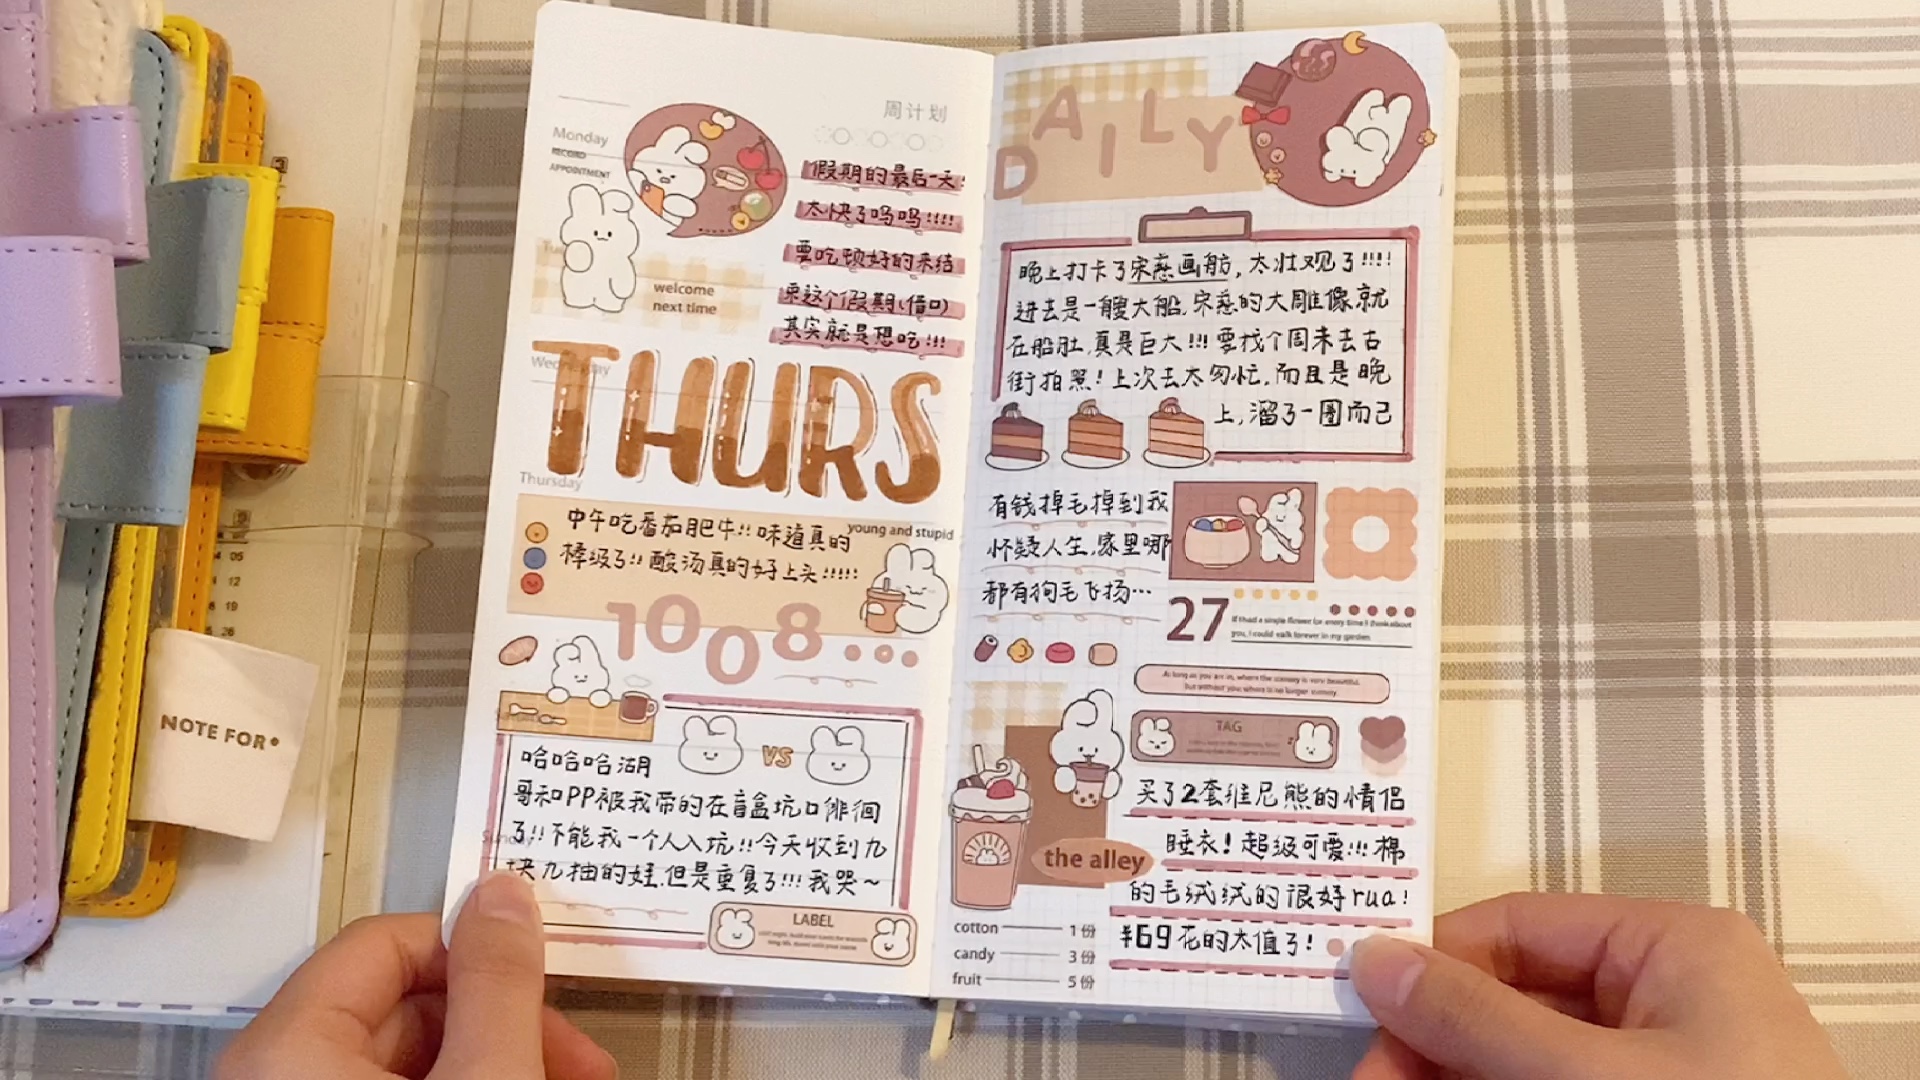 周计划
Monday
RECORD
APPOINTMENT
假期的最后一天!
太快了呜呜!!!!
要吃顿好的来结
束这个假期(借口)
其实就是想吃!!!
welcome
next time
Wednesday
THURS
Thursday
young and stupid
中午吃番茄肥牛!!味道真的
棒级了!!酸汤真的好上头!!!!!
1008
VS
哈哈哈湖月
哥和PP被我带的在盲盒坑口徘徊
了!!不能我一个人入坑!!今天收到九
块九抽的娃,但是重复了!!!我哭~
Sunday
LABEL
DAILY
晚上打卡了宋慈画舫,太壮观了!!!!
进去是一艘大船,宋慈的大雕像就
在船肚,真是巨大!!!要找个周末去古
街拍照!上次去太匆忙,而且是晚
上,溜了一圈而已
有钱掉毛掉到我
怀疑人生,家里哪
都有狗毛飞扬…
27
If I had a single flower for every time I think about
you, I could walk forever in my garden
As long as you are in, where the scenery is very beautiful,
but without you, where is no longer scenery.
TAG
the alley
买了2套维尼熊的情侣
睡衣!超级可爱!!!棉
的毛绒绒的很好rua!
¥69花的太值了!
cotton 1份
candy 3份
fruit 5份
NOTE FOR
05
12
19
26